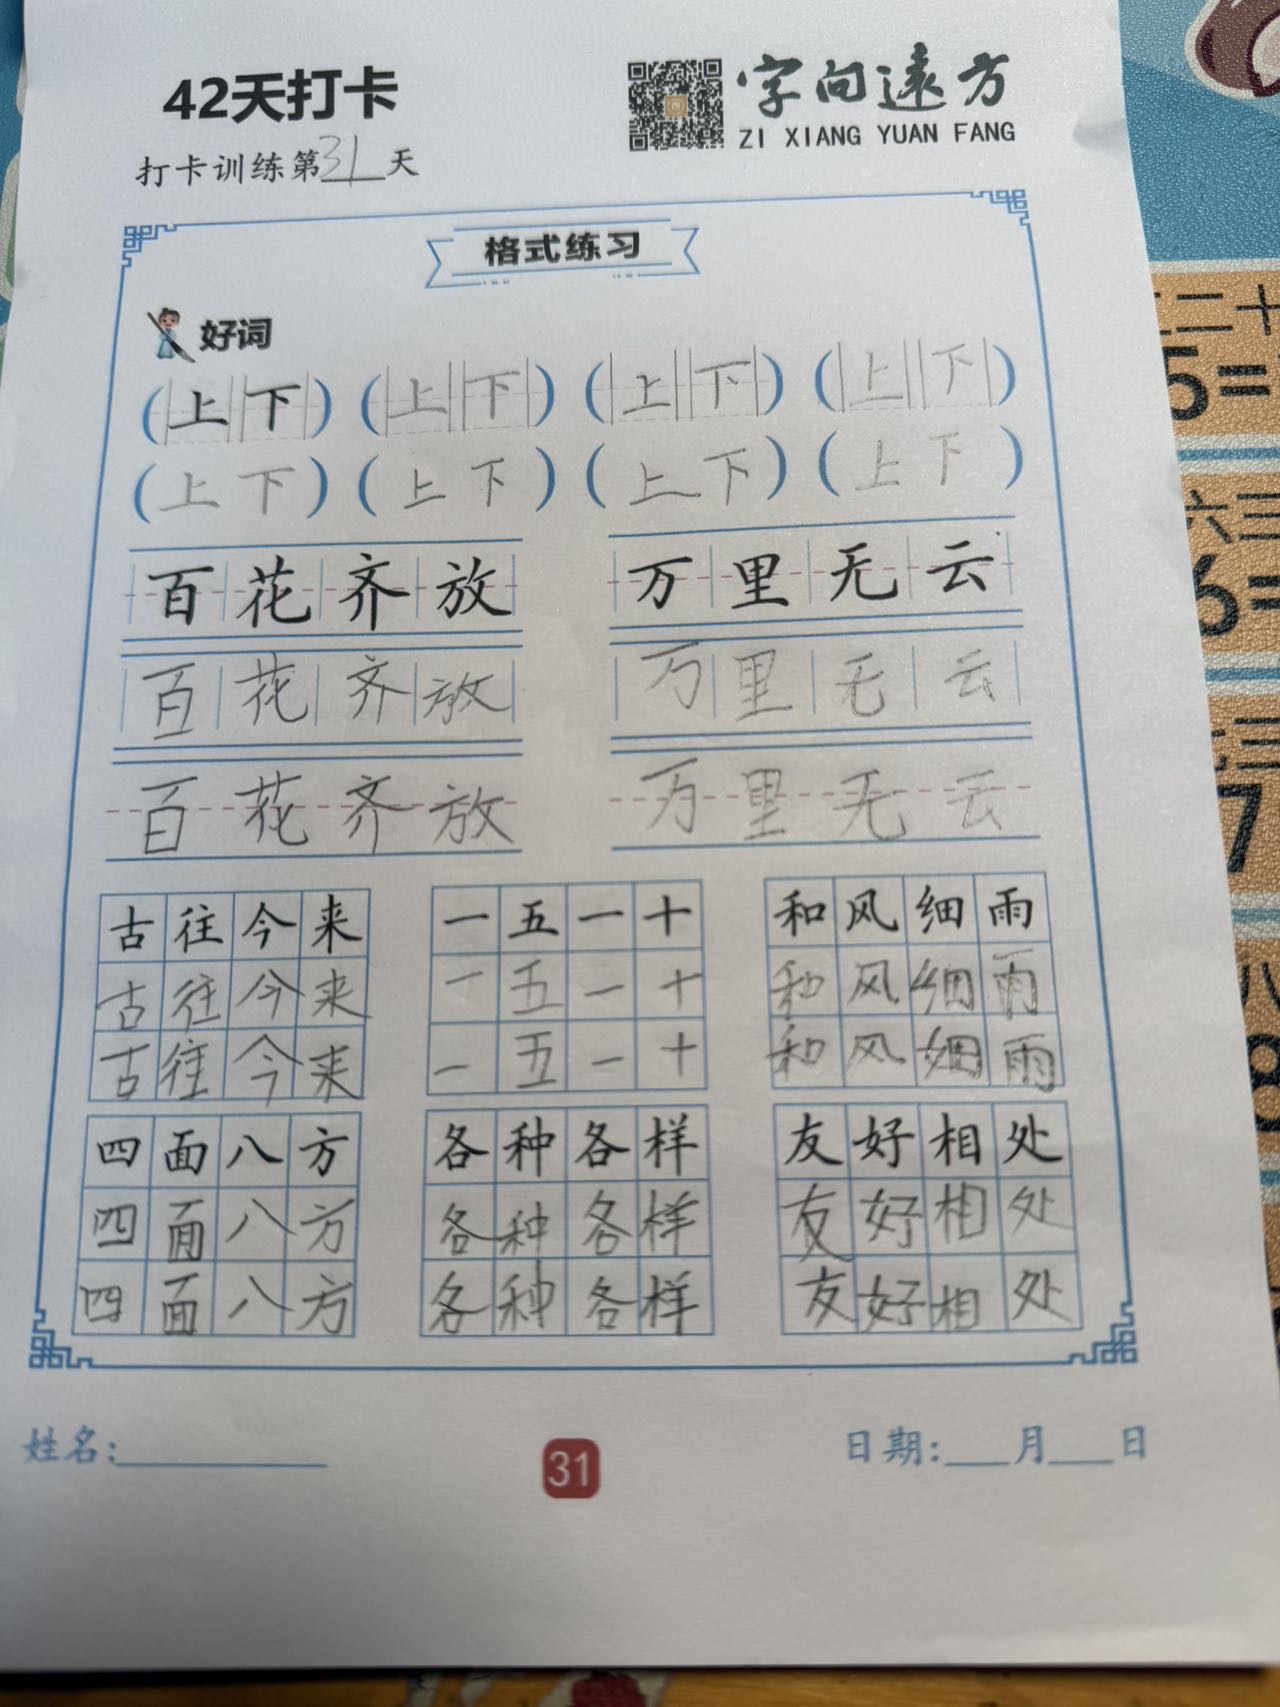 42天打卡
字向遠方
ZI XIANG YUAN FANG
打卡训练第31天
格式练习
好词
(上下) (上下) (上下) (上下)
(上下) (上下) (上下) (上下)
百花齐放 万里无云
百花齐放 万里无云
百花齐放 万里无云
古往今来 一五一十 和风细雨
古往今来 一五一十 和风细雨
古往今来 一五一十 和风细雨
四面八方 各种各样 友好相处
四面八方 各种各样 友好相处
四面八方 各种各样 友好相处
姓名:
31
日期: 月 日
二十
5=
六三
6=
7
八
8